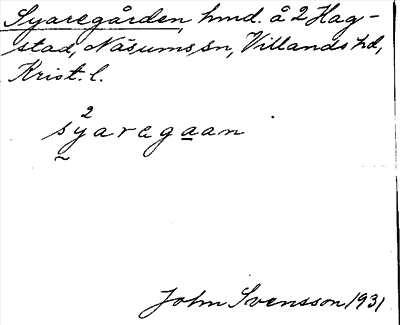 Syaregården, hmd. å 2 Hag-
stad, Näsums sn, Villands hd,
Krist. l.
2
syaregaan
John Svensson 1931